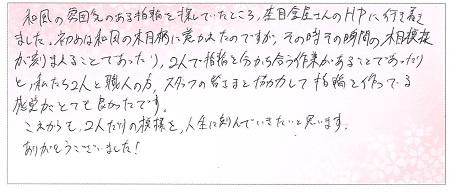 和風の雰囲気のある指輪を探していたところ、杢目金屋さんのHPに行き着き
ました。初めは和風の木目柄に惹かれたのですが、その時その瞬間の木目模様
が刻まれることであったり、2人で指輪を分かち合う作業があることであったり
と、私たち2人と職人の方、スタッフの皆さまと協力して指輪を作っている
感覚がとても良かったです。
これからも、2人だけの模様を、人生に刻んでいきたいと思います。
ありがとうございました!